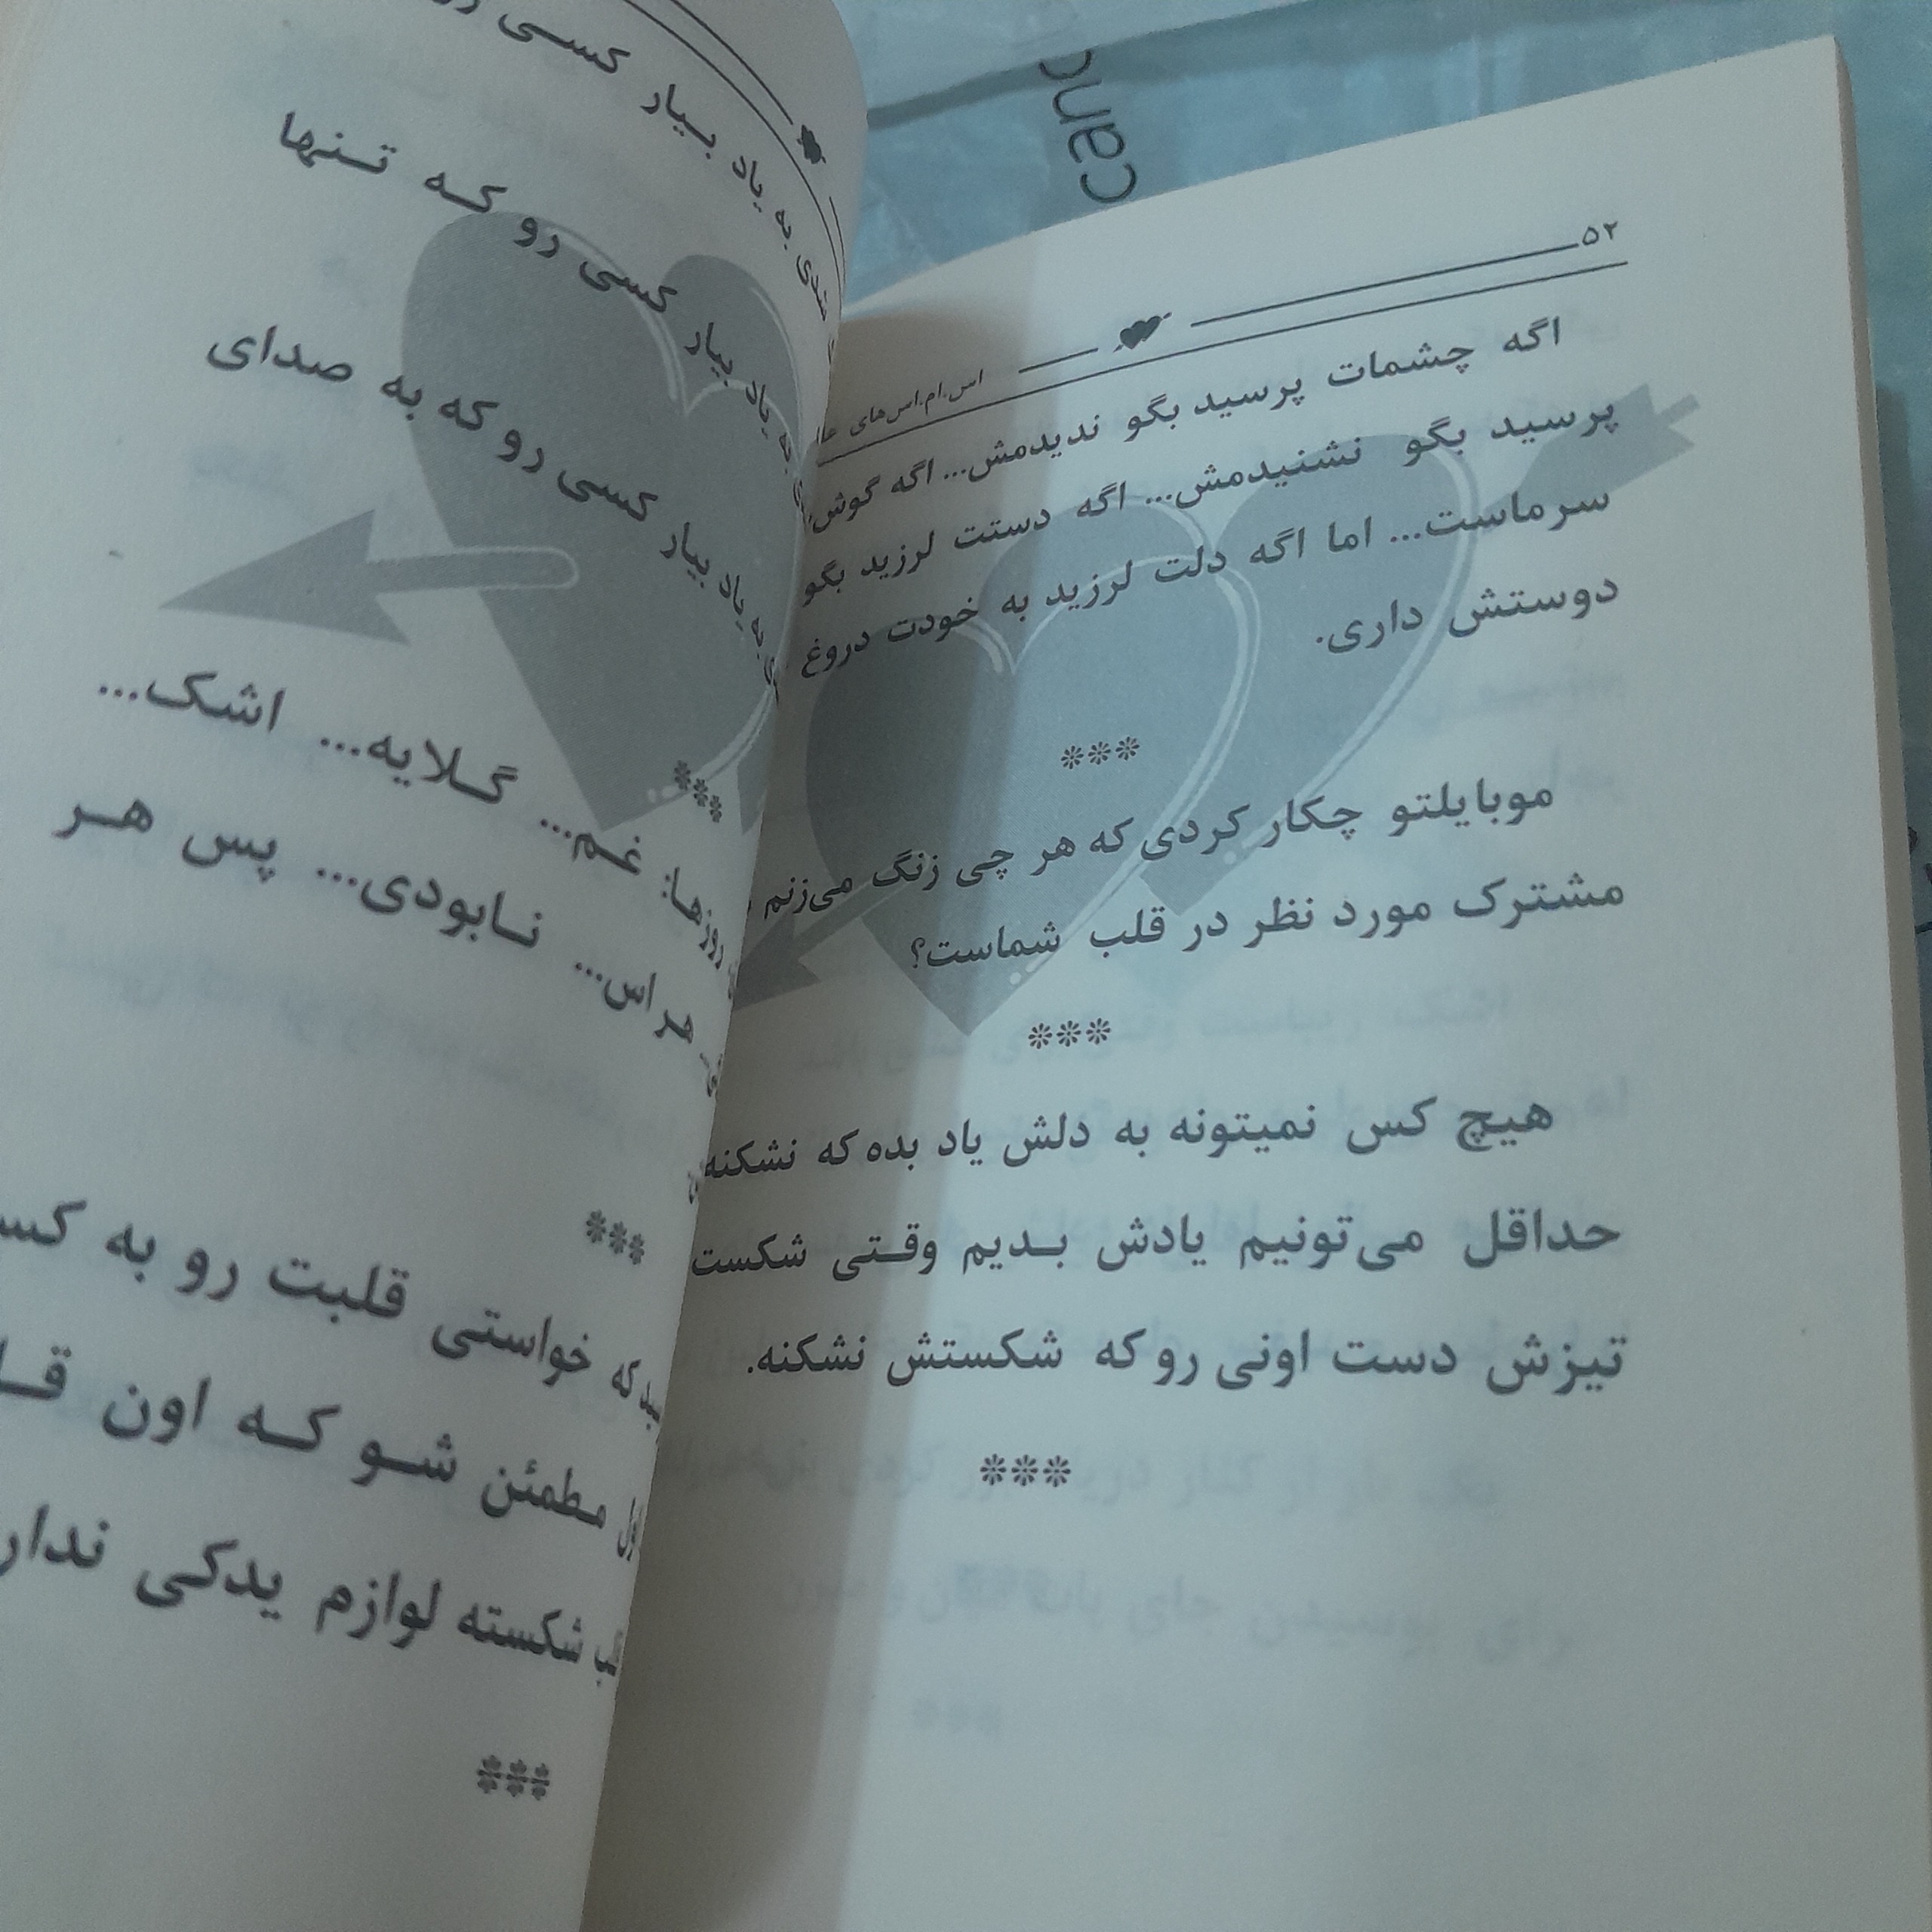 ۵۲
اس.ام.اس‌های
اگه چشمات پرسید بگو ندیدمش... اگه گوش
پرسید بگو نشنیدمش... اگه دستت لرزید بگو
سرماست... اما اگه دلت لرزید به خودت دروغ
دوستش داری.
***
موبایلتو چکار کردی که هر چی زنگ می‌زنم
مشترک مورد نظر در قلب شماست؟
***
هیچ کس نمیتونه به دلش یاد بده که نشکنه
حداقل می‌تونیم یادش بدیم وقتی شکست
تیزش دست اونی رو که شکستش نشکنه.
***
شدی به یاد بیار کسی
به یاد بیار کسی رو که تنها
به یاد بیار کسی رو که به صدای
***
روزها: غم... گلایه... اشک...
هراس... نابودی... پس هر
***
که خواستی قلبت رو به
مطمئن شو که اون
شکسته لوازم یدکی
***
canc